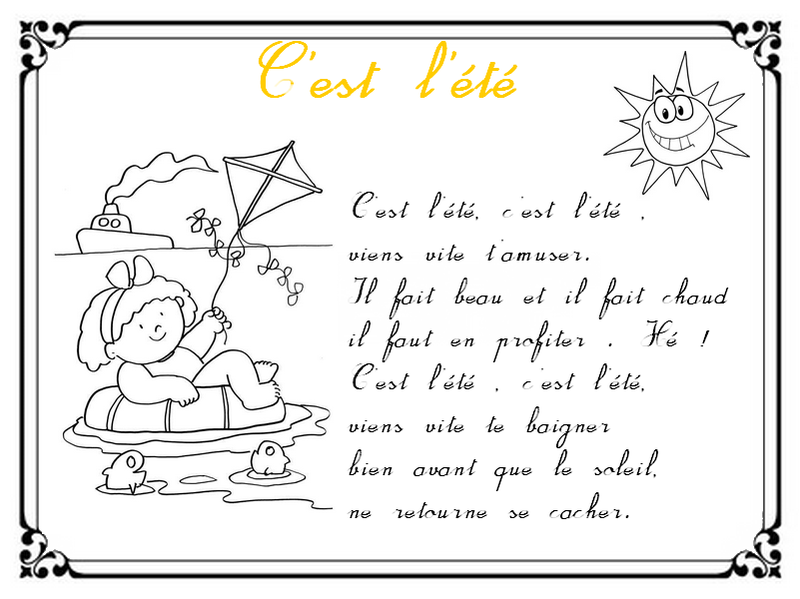 C'est l'été
C'est l'été, c'est l'été ,
viens vite t'amuser.
Il fait beau et il fait chaud
il faut en profiter . Hé !
C'est l'été , c'est l'été,
viens vite te baigner
bien avant que le soleil,
ne retourne se cacher.